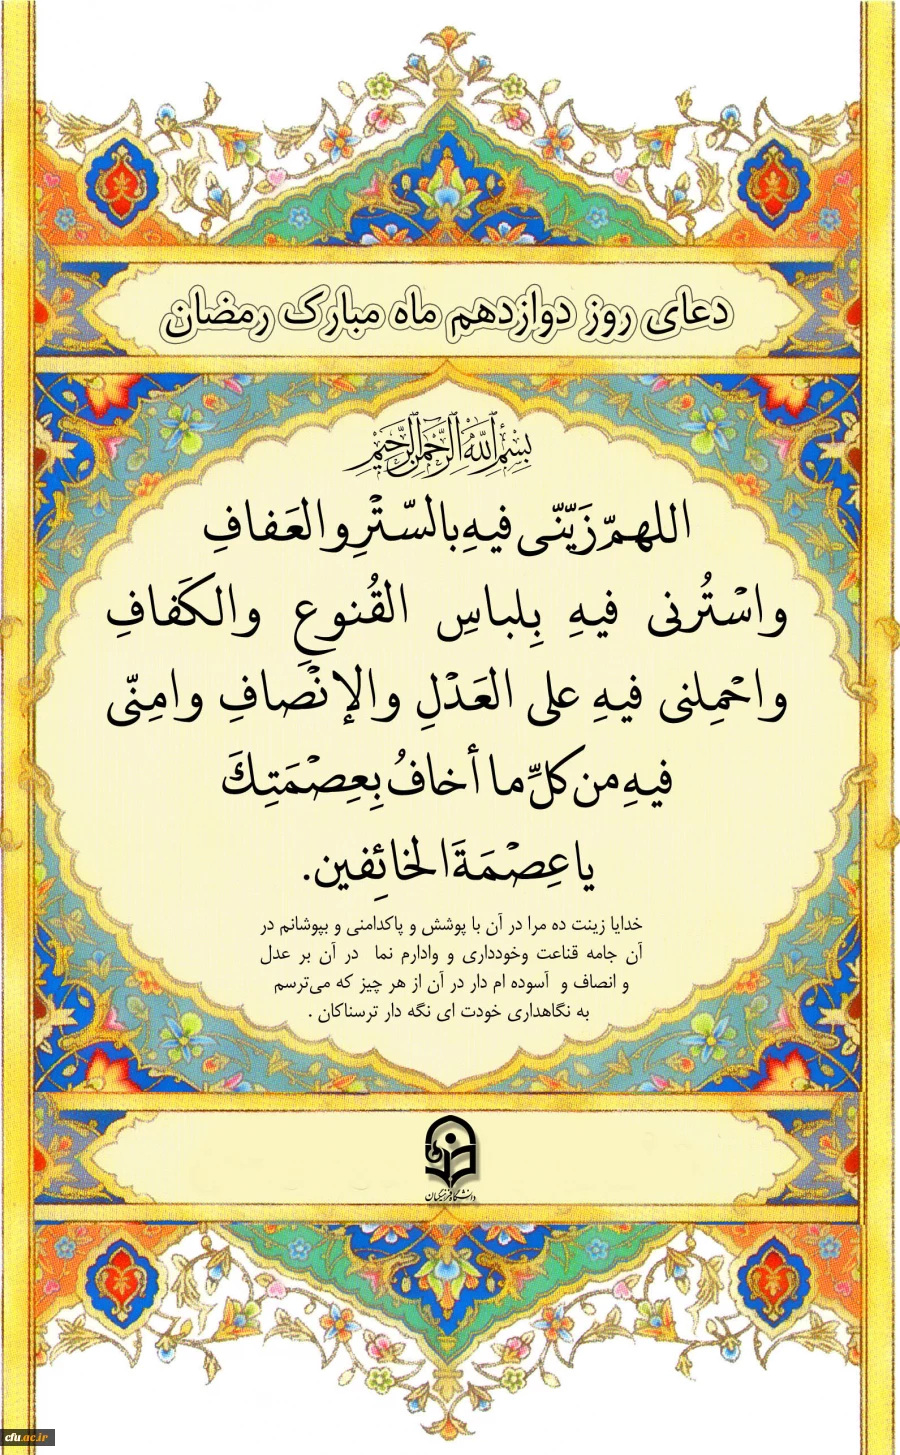 دعای روز دوازدهم ماه مبارک رمضان
بِسْمِ اللَّهِ الرَّحْمٰنِ الرَّحِيمِ
اللهمّ زَيّنّی فيهِ بالسّتْرِ والعَفافِ
واسْتُرنی فيهِ بِلباسِ القُنوعِ والكَفافِ
واحْمِلنی فيهِ علی العَدْلِ والإنْصافِ وامِنّی
فيهِ من كلِّ ما أخافُ بِعِصْمَتِكَ
ياعِصْمَةَ الخائِفين.
خدایا زینت ده مرا در آن با پوشش و پاکدامنی و بپوشانم در
آن جامه قناعت وخودداری و وادارم نما در آن بر عدل
و انصاف و آسوده ام دار در آن از هر چیز که می‌ترسم
به نگاهداری خودت ای نگه دار ترسناکان .
دانشگاه فرهنگیان
cfu.ac.ir